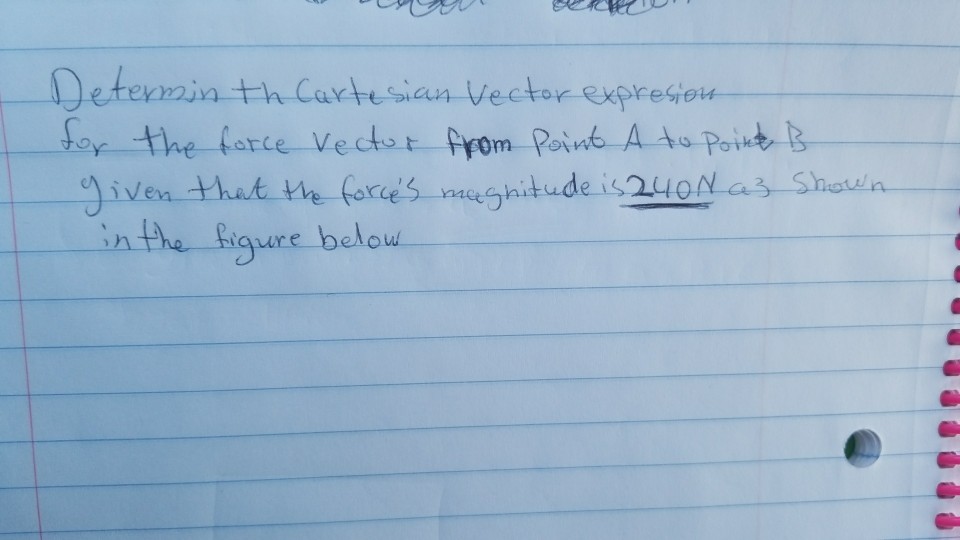 Determin th Cartesian Vector expresion
for the force Vector from Point A to Point B
given that the force's magnitude is 240N as Shown
in the figure below